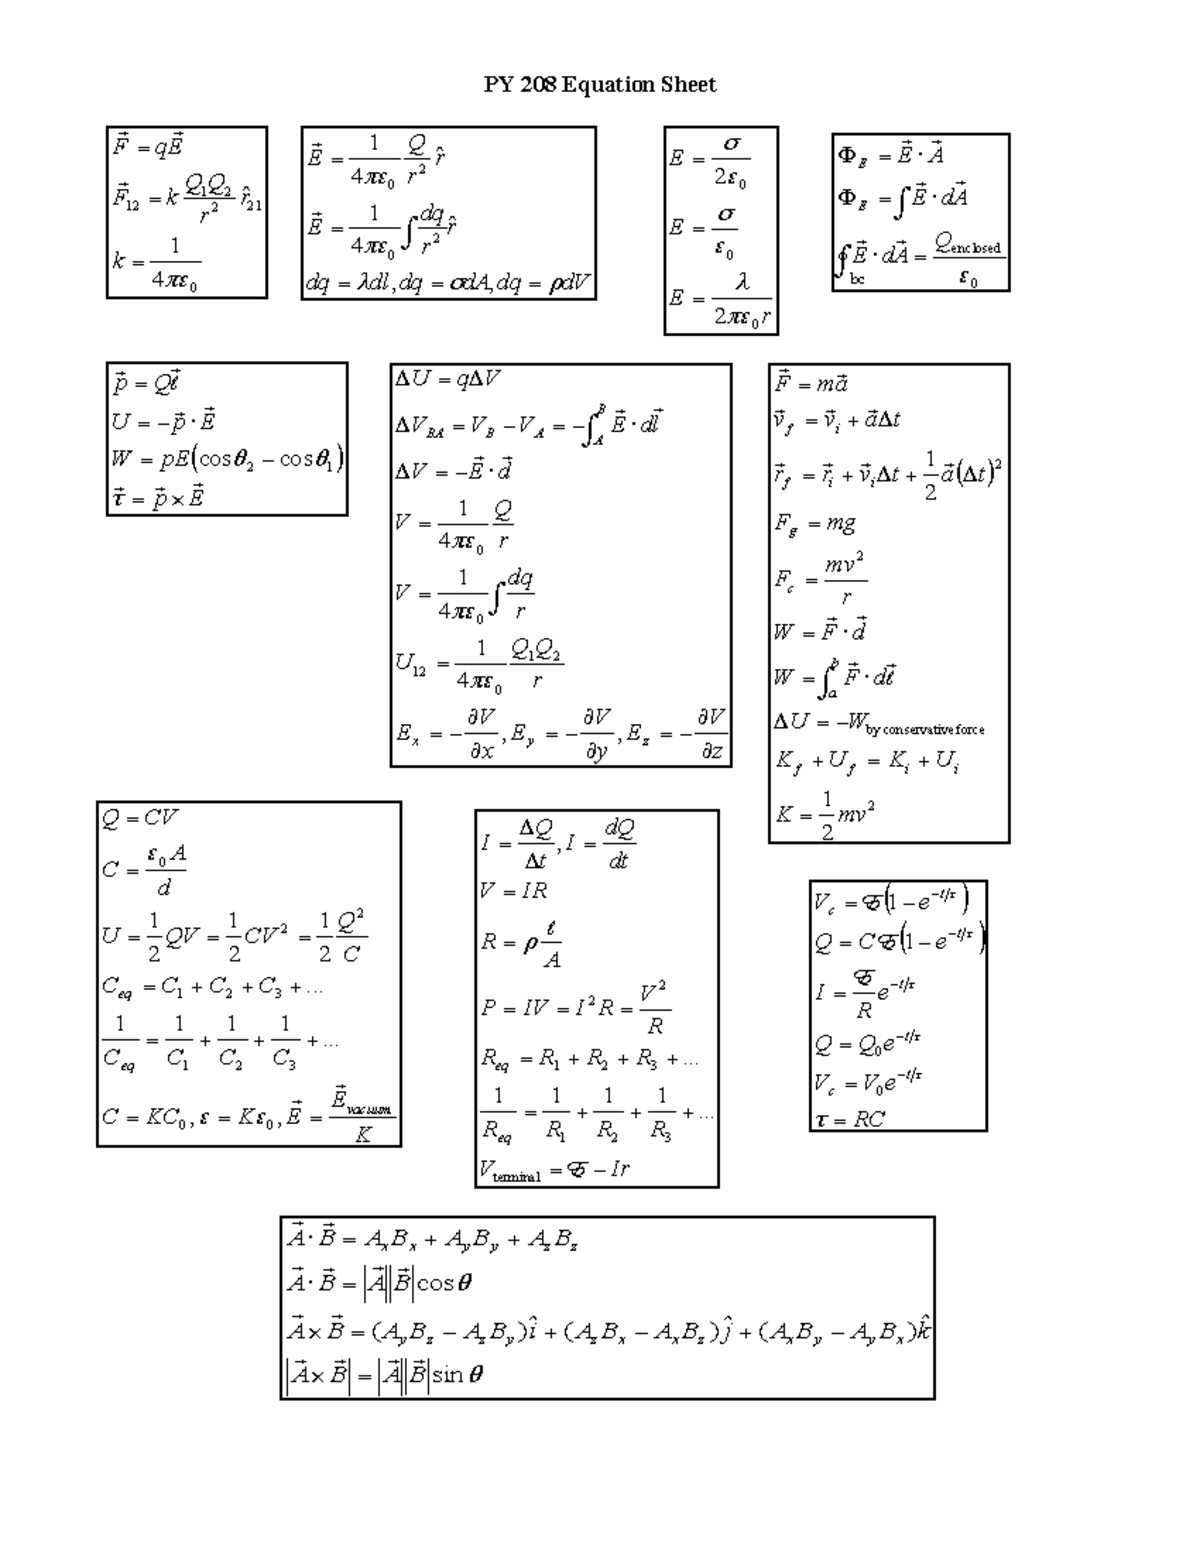 PY 208 Equation Sheet
F⃗ = qE⃗
F⃗₁₂ = k Q₁Q₂/r² r̂₂₁
k = 1/4πε₀
E⃗ = 1/4πε₀ Q/r² r̂
E⃗ = 1/4πε₀ ∫ dq/r² r̂
dq = λdl, dq = σdA, dq = ρdV
E = σ/2ε₀
E = σ/ε₀
E = λ/2πε₀r
Φ_E = E⃗ · A⃗
Φ_E = ∫ E⃗ · dA⃗
∮_bc E⃗ · dA⃗ = Q_enclosed/ε₀
p⃗ = Qℓ⃗
U = −p⃗ · E⃗
W = pE(cos θ₂ − cos θ₁)
τ⃗ = p⃗ × E⃗
ΔU = qΔV
ΔV_BA = V_B − V_A = −∫_A^B E⃗ · dl⃗
ΔV = −E⃗ · d⃗
V = 1/4πε₀ Q/r
V = 1/4πε₀ ∫ dq/r
U₁₂ = 1/4πε₀ Q₁Q₂/r
E_x = −∂V/∂x, E_y = −∂V/∂y, E_z = −∂V/∂z
F⃗ = ma⃗
v⃗_f = v⃗_i + a⃗Δt
r⃗_f = r⃗_i + v⃗_iΔt + 1/2 a⃗(Δt)²
F_g = mg
F_c = mv²/r
W = F⃗ · d⃗
W = ∫_a^b F⃗ · dℓ⃗
ΔU = −W_by conservative force
K_f + U_f = K_i + U_i
K = 1/2 mv²
Q = CV
C = ε₀A/d
U = 1/2 QV = 1/2 CV² = 1/2 Q²/C
C_eq = C₁ + C₂ + C₃ + ...
1/C_eq = 1/C₁ + 1/C₂ + 1/C₃ + ...
C = KC₀, ε = Kε₀, E⃗ = E⃗_vacuum/K
I = ΔQ/Δt, I = dQ/dt
V = IR
R = ρ ℓ/A
P = IV = I²R = V²/R
R_eq = R₁ + R₂ + R₃ + ...
1/R_eq = 1/R₁ + 1/R₂ + 1/R₃ + ...
V_terminal = ℰ − Ir
V_c = ℰ(1 − e^(−t/τ))
Q = Cℰ(1 − e^(−t/τ))
I = ℰ/R e^(−t/τ)
Q = Q₀e^(−t/τ)
V_c = V₀e^(−t/τ)
τ = RC
A⃗ · B⃗ = A_xB_x + A_yB_y + A_zB_z
A⃗ · B⃗ = |A⃗||B⃗|cos θ
A⃗ × B⃗ = (A_yB_z − A_zB_y)î + (A_zB_x − A_xB_z)ĵ + (A_xB_y − A_yB_x)k̂
|A⃗ × B⃗| = |A⃗||B⃗|sin θ